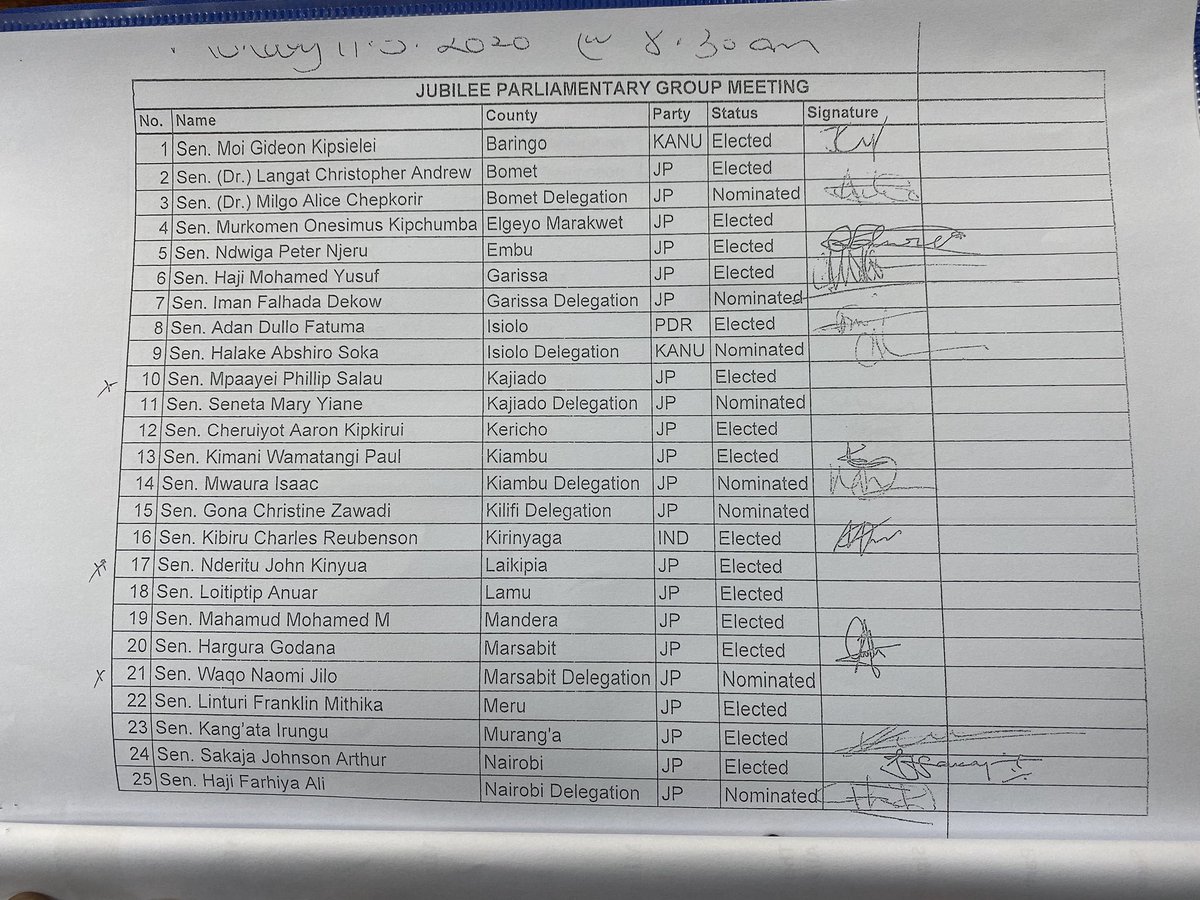 11.5.2020 @ 8.30am
JUBILEE PARLIAMENTARY GROUP MEETING
No. Name County Party Status Signature
1 Sen. Moi Gideon Kipsielei Baringo KANU Elected
2 Sen. (Dr.) Langat Christopher Andrew Bomet JP Elected
3 Sen. (Dr.) Milgo Alice Chepkorir Bomet Delegation JP Nominated
4 Sen. Murkomen Onesimus Kipchumba Elgeyo Marakwet JP Elected
5 Sen. Ndwiga Peter Njeru Embu JP Elected
6 Sen. Haji Mohamed Yusuf Garissa JP Elected
7 Sen. Iman Falhada Dekow Garissa Delegation JP Nominated
8 Sen. Adan Dullo Fatuma Isiolo PDR Elected
9 Sen. Halake Abshiro Soka Isiolo Delegation KANU Nominated
10 Sen. Mpaayei Phillip Salau Kajiado JP Elected
11 Sen. Seneta Mary Yiane Kajiado Delegation JP Nominated
12 Sen. Cheruiyot Aaron Kipkirui Kericho JP Elected
13 Sen. Kimani Wamatangi Paul Kiambu JP Elected
14 Sen. Mwaura Isaac Kiambu Delegation JP Nominated
15 Sen. Gona Christine Zawadi Kilifi Delegation JP Nominated
16 Sen. Kibiru Charles Reubenson Kirinyaga IND Elected
17 Sen. Nderitu John Kinyua Laikipia JP Elected
18 Sen. Loitiptip Anuar Lamu JP Elected
19 Sen. Mahamud Mohamed M Mandera JP Elected
20 Sen. Hargura Godana Marsabit JP Elected
21 Sen. Waqo Naomi Jilo Marsabit Delegation JP Nominated
22 Sen. Linturi Franklin Mithika Meru JP Elected
23 Sen. Kang'ata Irungu Murang'a JP Elected
24 Sen. Sakaja Johnson Arthur Nairobi JP Elected
25 Sen. Haji Farhiya Ali Nairobi Delegation JP Nominated